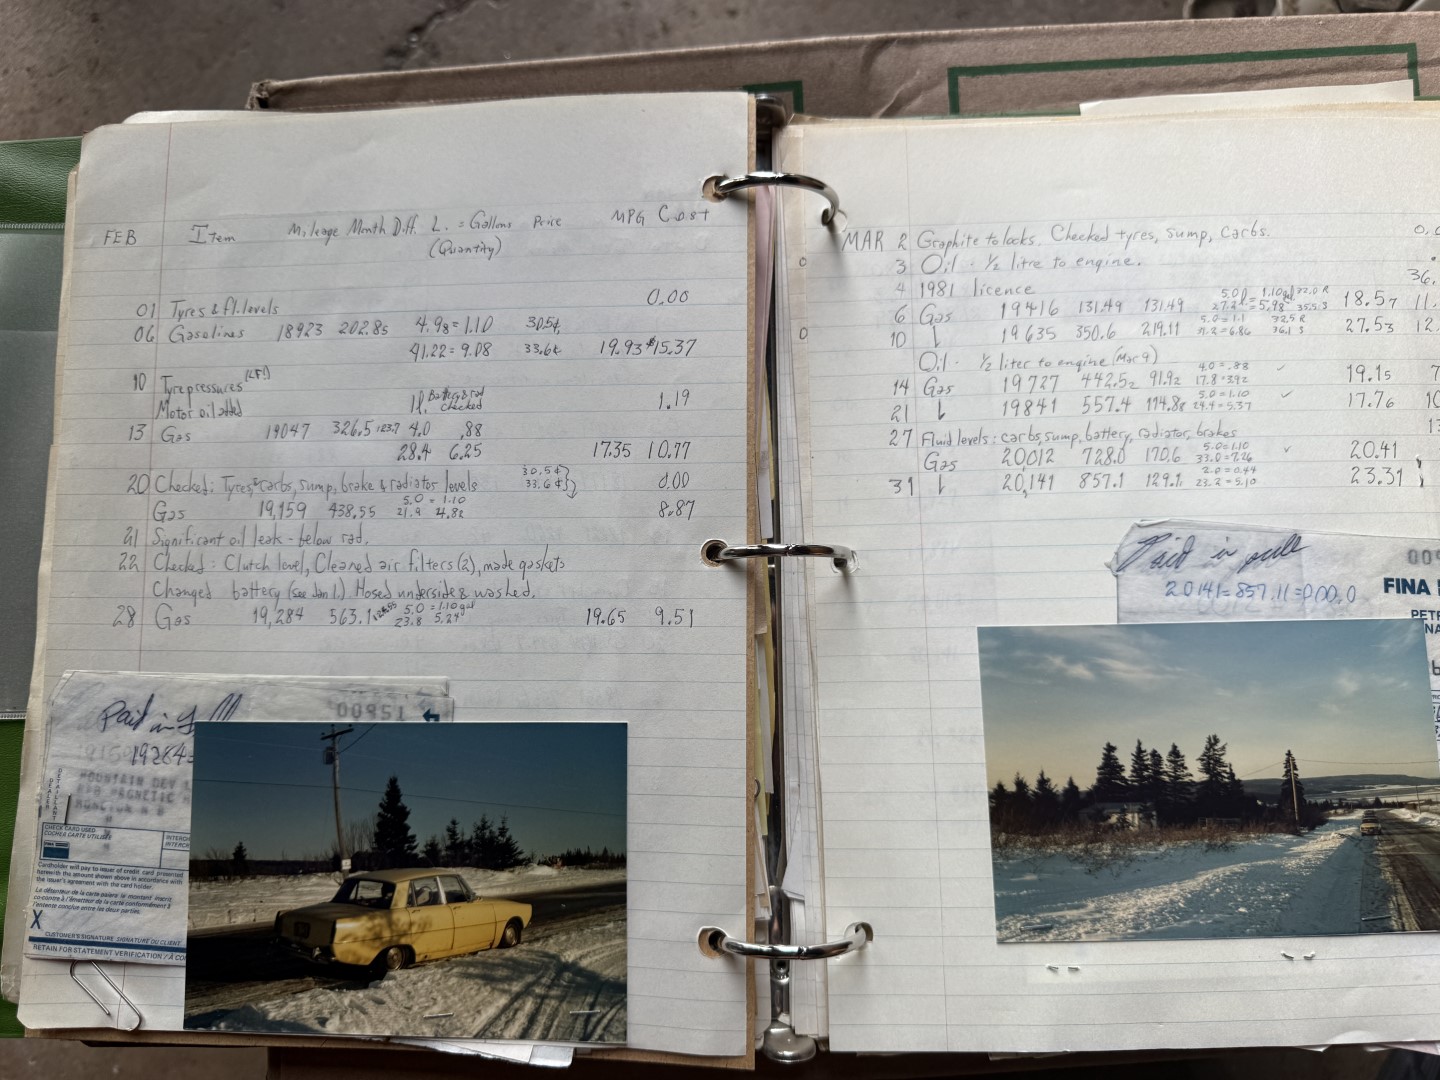 FEB Item Mileage Month Diff. L. = Gallons Price MPG Cost
(Quantity)
01 Tyres & fl. levels 0.00
06 Gasolines 18923 202.85 4.98=1.10 30.5¢
41.22=9.08 33.6¢ 19.93 $15.37
10 Tyre pressures (LF!)
Motor oil added 1l. Battery & rad checked 1.19
13 Gas 19047 326.5 123.7 4.0 .88
28.4 6.25 17.35 10.77
20 Checked: Tyres, carbs, sump, brake & radiator levels 30.5¢ 33.6¢ 0.00
Gas 19,159 438.55 5.0 = 1.10 21.9 4.82 8.87
21 Significant oil leak - below rad.
22 Checked: Clutch level, Cleaned air filters (2), made gaskets
Changed battery (see Jan 1.) Hosed underside & washed.
28 Gas 19,284 563.1 5.0 = 1.10 gal 23.8 5.24 19.65 9.51
Paid in full
19284=
MOUNTAIN
MAGNETIC
CHECK CARD USED
COCHER CARTE UTILISÉE
Cardholder will pay to issuer of credit card presented
herewith the amount shown above in accordance with
the issuer's agreement with the card holder.
Le détenteur de la carte paiera le montant inscrit
ci-contre à l'émetteur de la carte conformément à
l'entente conclue entre les deux parties.
X
CUSTOMER'S SIGNATURE SIGNATURE DU CLIENT
RETAIN FOR STATEMENT VERIFICATION / À CO
MAR 2 Graphite to locks. Checked tyres, sump, carbs.
3 Oil - ½ litre to engine.
4 1981 licence 36.
6 Gas 19416 131.49 131.49 5.0 l = 1.10 gal 32.0 R 27.2 l = 5.98 35.5 S 18.57 11.
10 ↓ 19635 350.6 219.11 5.0 = 1.1 32.5 R 31.2 = 6.86 36.1 S 27.53 12.
Oil - ½ liter to engine (Mar 9)
14 Gas 19727 442.52 91.92 4.0 = .88 17.8 = 3.92 19.15 7
21 ↓ 19841 557.4 114.88 5.0 = 1.10 24.4 = 5.37 17.76 10
27 Fluid levels: carbs, sump, battery, radiator, brakes
Gas 20,012 728.0 170.6 5.0=1.10 33.0=7.26 20.41
31 ↓ 20,141 857.1 129.1 2.0=0.44 23.2=5.10 23.31
Paid in full
20141=857.11=000.0
FINA